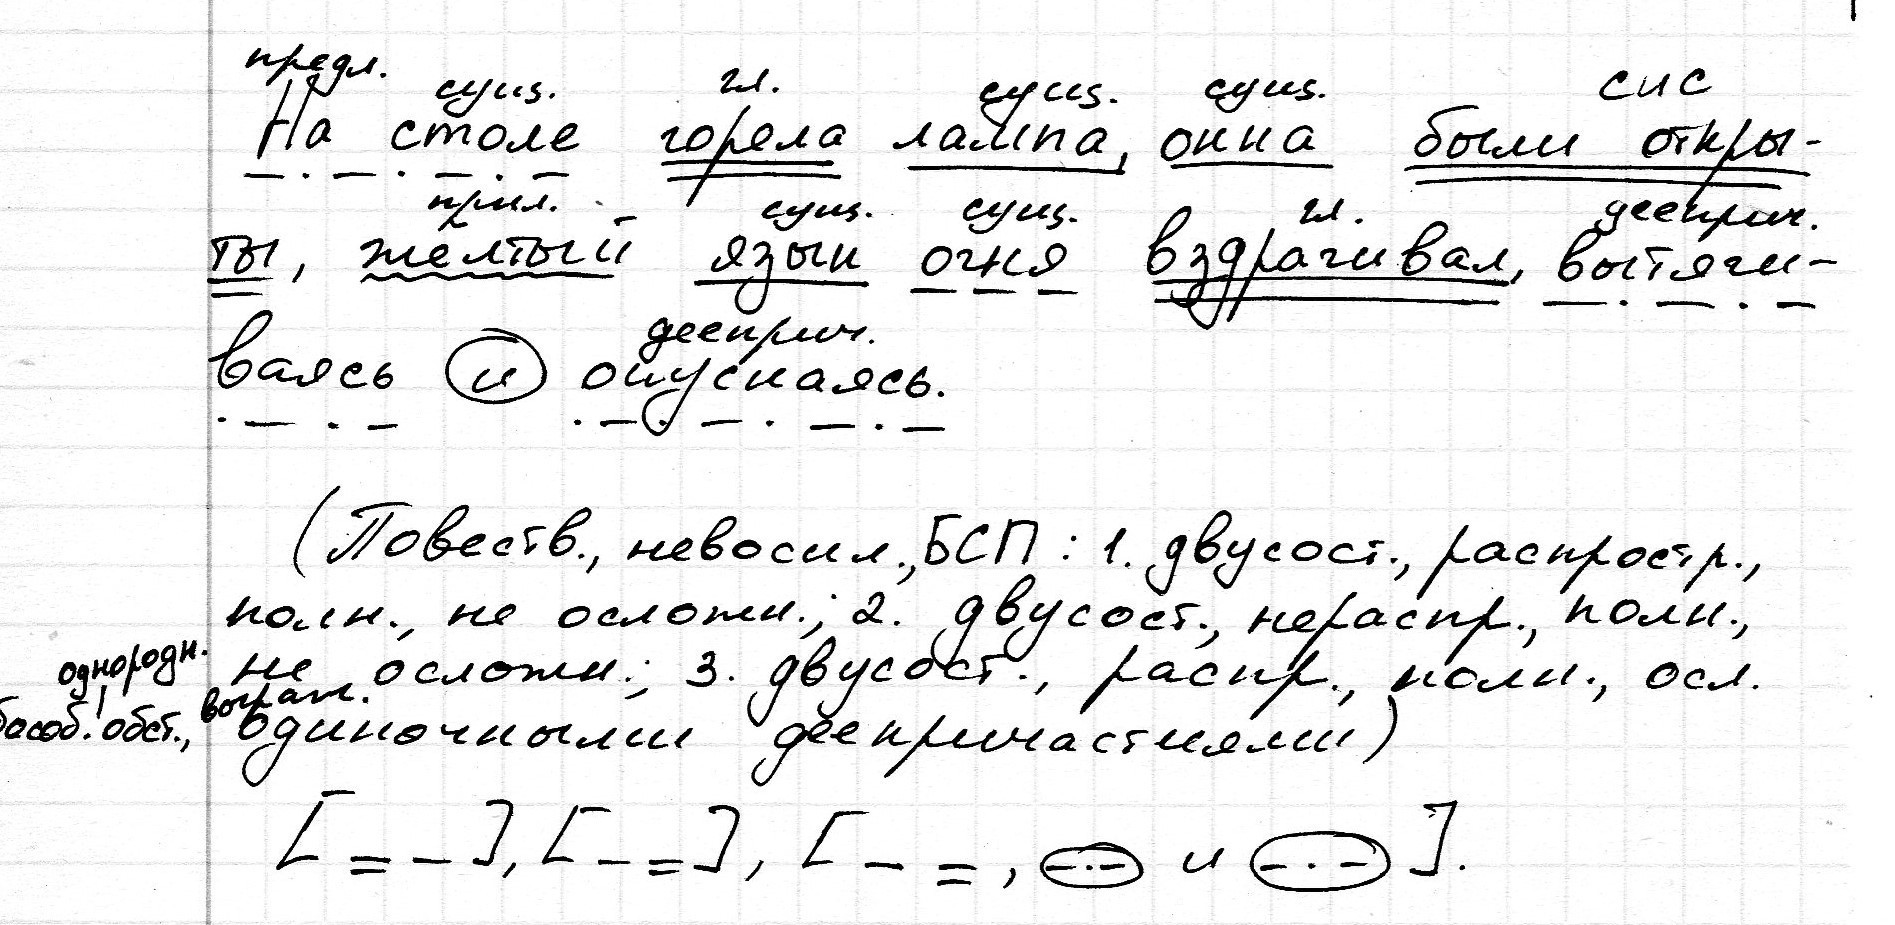 предл. сущ. гл. сущ. сущ. СИС
На столе горела лампа, окна были откры-
прил. сущ. сущ. гл. дееприч.
ты, желтый язык огня вздрагивал, вытяги-
дееприч.
ваясь и опускаясь.
(Повеств., невоскл., БСП: 1. двусост., распростр.,
полн., не осложн.; 2. двусост., нераспр., полн.,
однородн. не осложн.; 3. двусост., распр., полн., осл.
выраж.
обособ. обст., одиночными деепричастиями)
[= –], [– =], [– =, –·– и –·–].